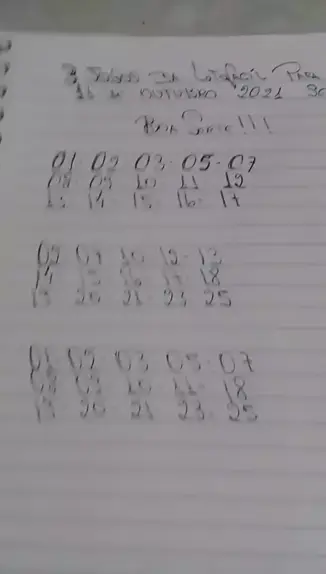 3 Jogos da Lotofácil Para
16 de outubro 2021
Boa Sorte!!!
01 02 03 05 07
08 09 10 11 12
13 14 15 16 17
10 12 13
14 15 16 17 18
19 20 21 23 25
01 02 03 05 07
08 09 10 11 18
19 20 21 23 25